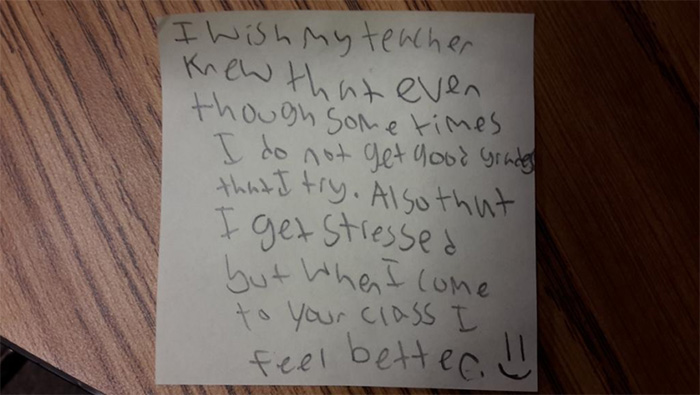 I wish my teacher
knew that even
though some times
I do not get good grades
that I try. Also that
I get stressed
but when I come
to your class I
feel better. !!